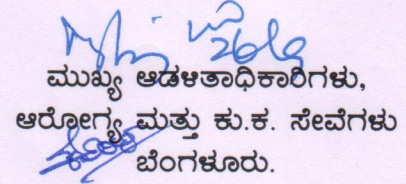 ಮುಖ್ಯ ಆಡಳಿತಾಧಿಕಾರಿಗಳು,
ಆರೋಗ್ಯ ಮತ್ತು ಕು.ಕ. ಸೇವೆಗಳು
ಬೆಂಗಳೂರು.